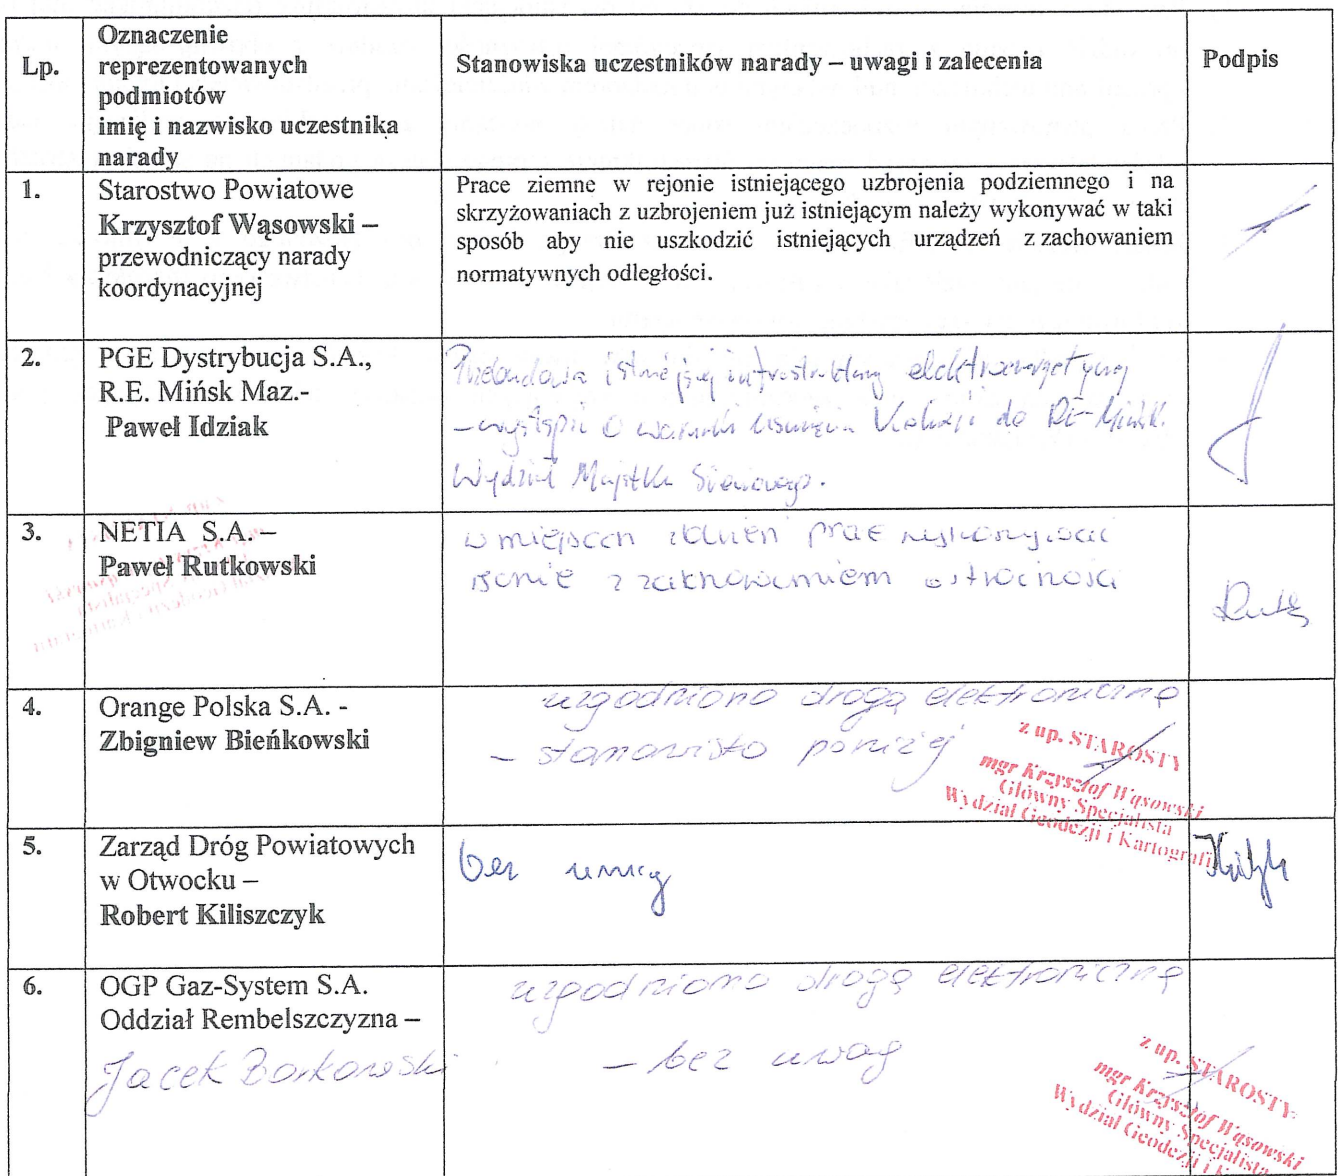 Lp.
Oznaczenie
reprezentowanych
podmiotów
imię i nazwisko uczestnika
narady
Stanowiska uczestników narady – uwagi i zalecenia
Podpis
1.
Starostwo Powiatowe
Krzysztof Wąsowski –
przewodniczący narady
koordynacyjnej
Prace ziemne w rejonie istniejącego uzbrojenia podziemnego i na
skrzyżowaniach z uzbrojeniem już istniejącym należy wykonywać w taki
sposób aby nie uszkodzić istniejących urządzeń z zachowaniem
normatywnych odległości.
2.
PGE Dystrybucja S.A.,
R.E. Mińsk Maz.-
Paweł Idziak
Przebudowa istniejącej infrastruktury elektroenergetycznej
- wystąpić o warunki usunięcia kolizji do RE-Mińsk.
Wydział Majątku Sieciowego.
3.
NETIA S.A. –
Paweł Rutkowski
w miejscach zbliżeń prace wykonywać
ręcznie z zachowaniem ostrożności
4.
Orange Polska S.A. -
Zbigniew Bieńkowski
uzgodniono drogą elektroniczną
- stanowisko poniżej
z up. STAROSTY
mgr Krzysztof Wąsowski
Główny Specjalista
Wydział Geodezji i Kartografii
5.
Zarząd Dróg Powiatowych
w Otwocku –
Robert Kiliszczyk
bez uwag
6.
OGP Gaz-System S.A.
Oddział Rembelszczyzna –
Jacek Borkowski
uzgodniono drogą elektroniczną
- bez uwag
z up. STAROSTY
mgr Krzysztof Wąsowski
Główny Specjalista
Wydział Geodezji i